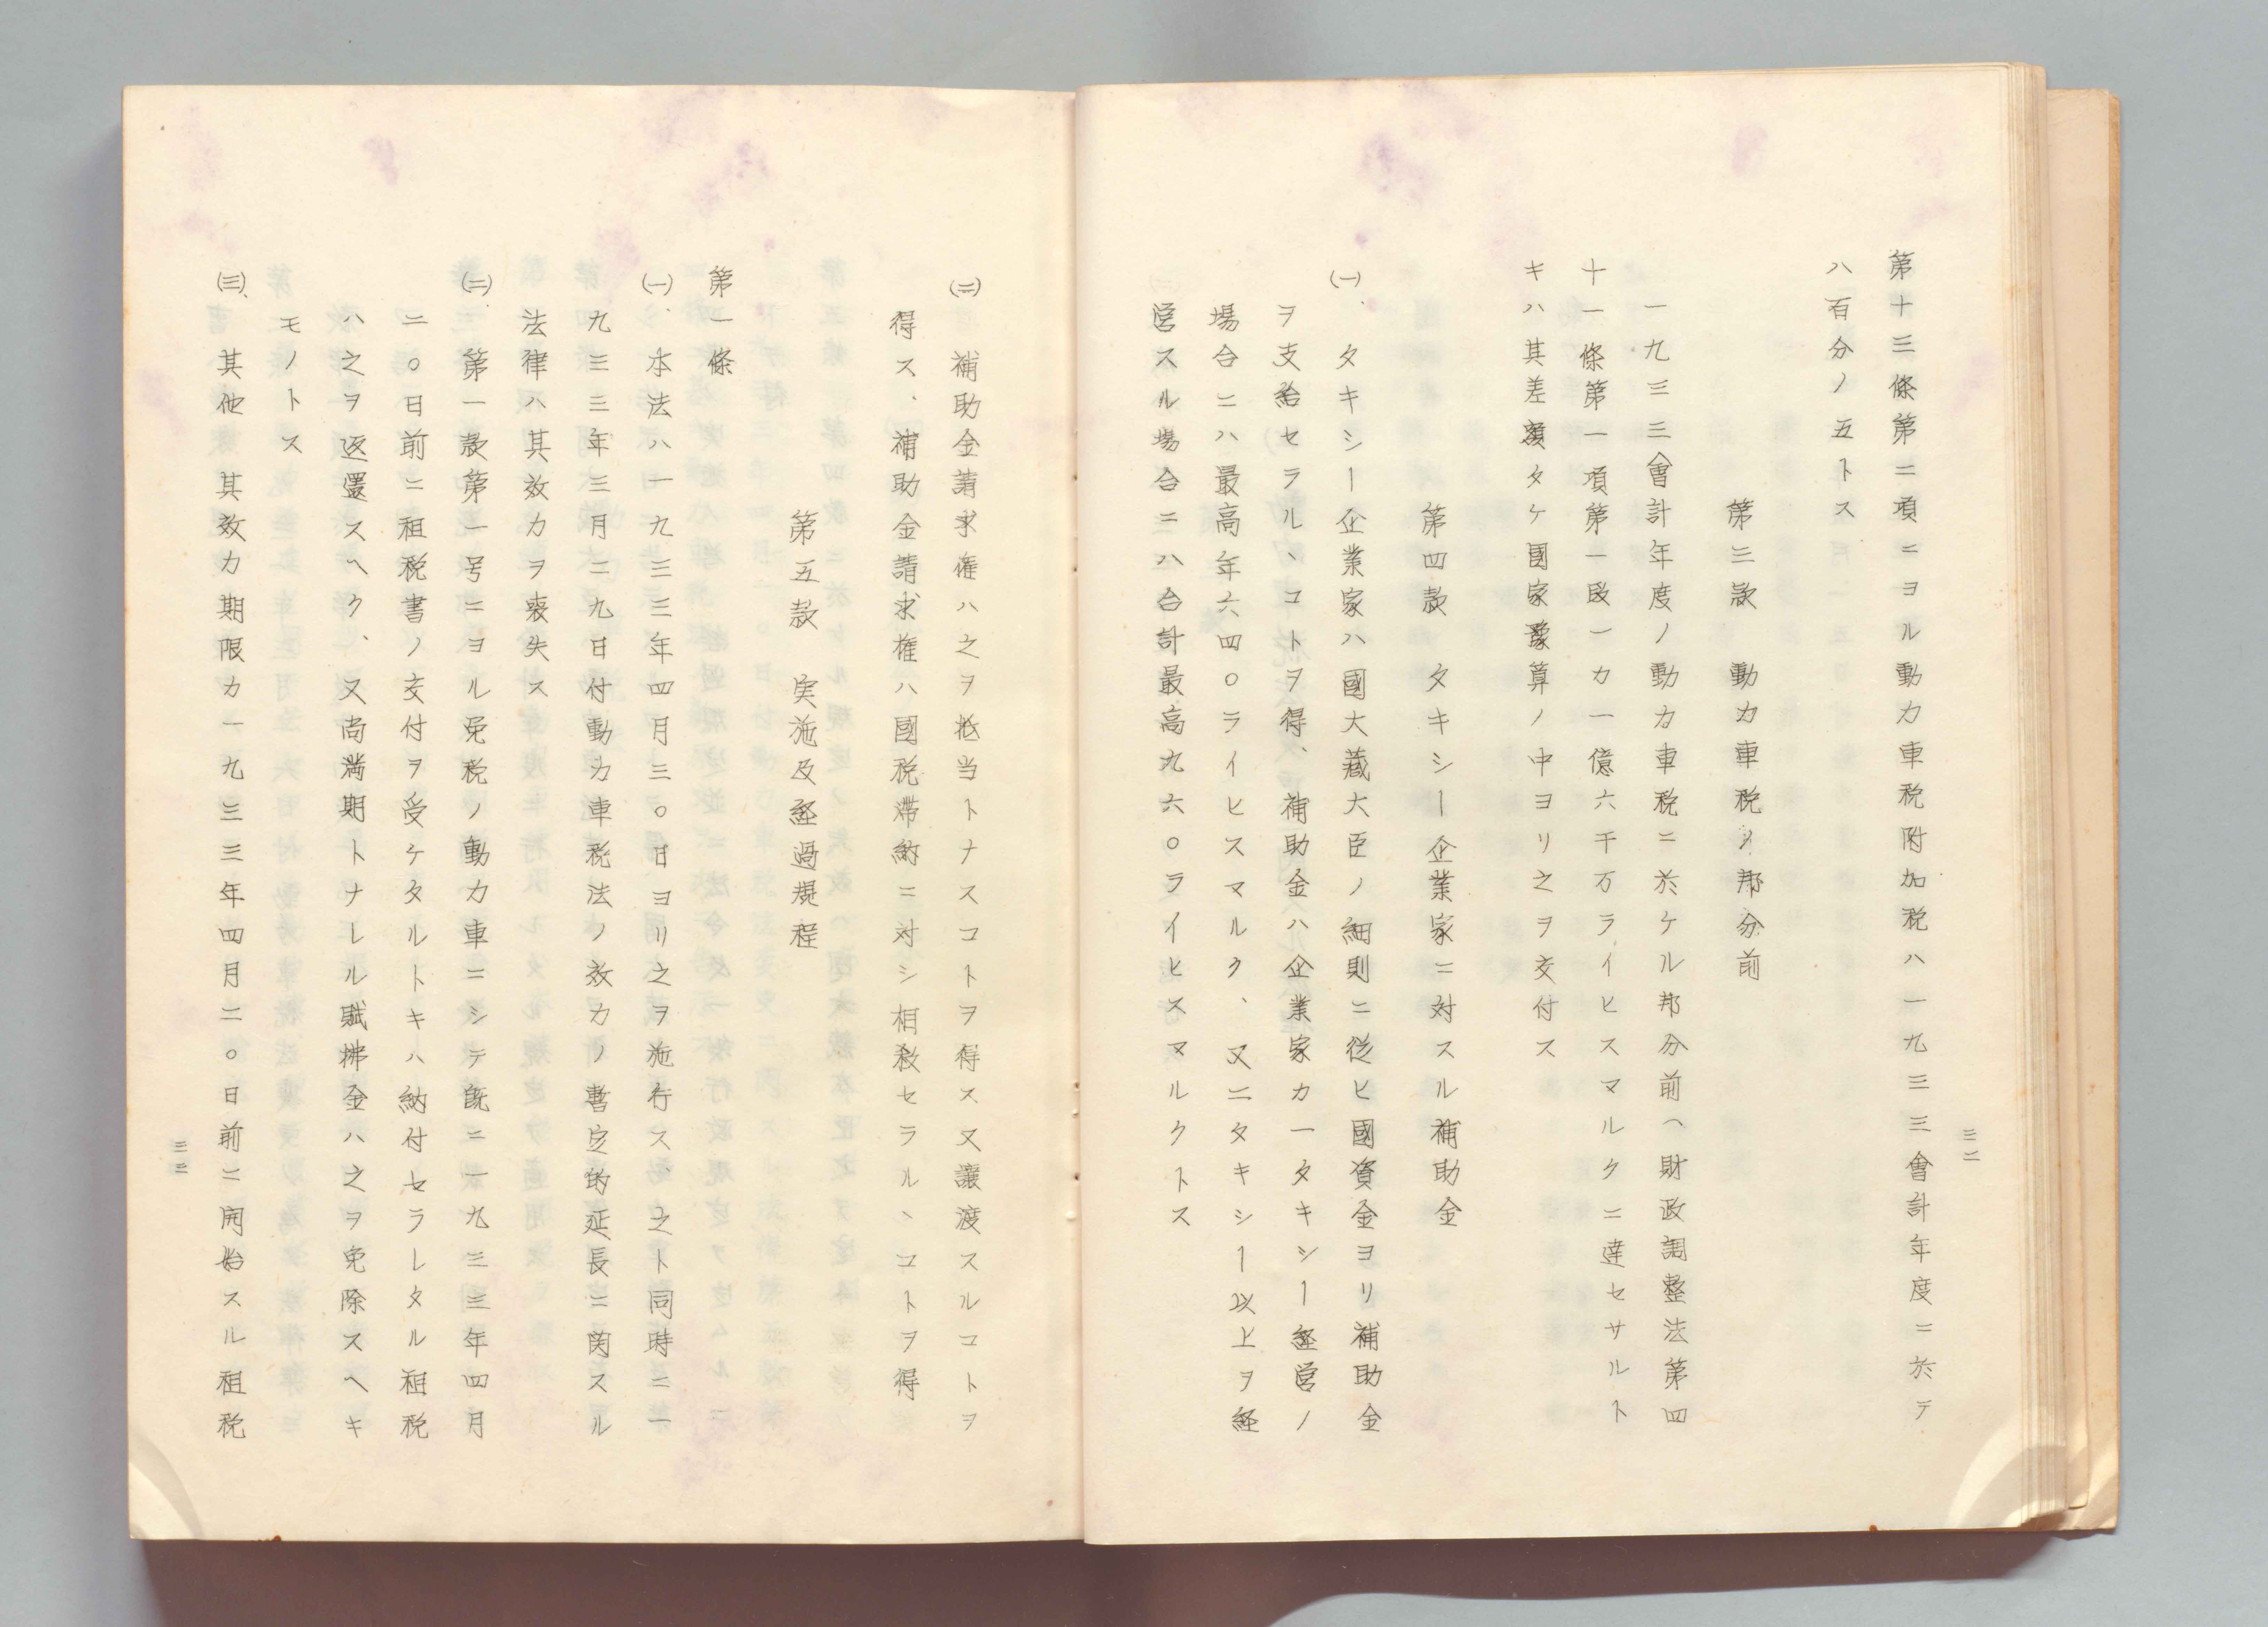 第十三條第二項ニヨル動力車税附加税ハ一九三三會計年度ニ於テ
ハ百分ノ五トス
第三款　動力車税ノ邦分前
一九三三會計年度ノ動力車税ニ於ケル邦分前ヘ財政調整法第四
十一條第一項第一段ーカ一億六千万ライヒスマルクニ達セサルト
キハ其差額タケ國家豫算ノ中ヨリ之ヲ交付ス
第四款　タキシー企業家ニ対スル補助金
(一)、タキシー企業家ハ國大藏大臣ノ細則ニ從ヒ國資金ヨリ補助金
ヲ支給セラルヽコトヲ得、補助金ハ企業家カ一タキシー経営ノ
場合ニハ最高年六四〇ライヒスマルク、又ニタキシー以上ヲ経
営スル場合ニハ合計最高九六〇ライヒスマルクトス
三二
(二)　補助金請求権ハ之ヲ抵当トナスコトヲ得ス又讓渡スルコトヲ
得ス、補助金請求権ハ國税滞納ニ対シ相殺セラルヽコトヲ得
第五款　実施及経過規程
第一條
(一)、本法ハ一九三三年四月三〇日ヨリ之ヲ施行ス、之ト同時ニ一
九三三年三月二九日付動力車税法ノ效力ノ暫定的延長ニ関スル
法律ハ其效力ヲ喪失ス
(二)、第一款第一号ニヨル免税ノ動力車ニシテ既ニ一九三三年四月
二〇日前ニ租税書ノ交付ヲ受ケタルトキハ納付セラレタル租税
ハ之ヲ返還スヘク、又尚満期トナレル賦拂金ハ之ヲ免除スヘキ
モノトス
(三)、其他、其效力期限カ一九三三年四月二〇日前ニ開始スル租税
三三